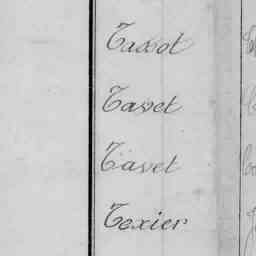 Tassot
Tavet
Tavet
Texier